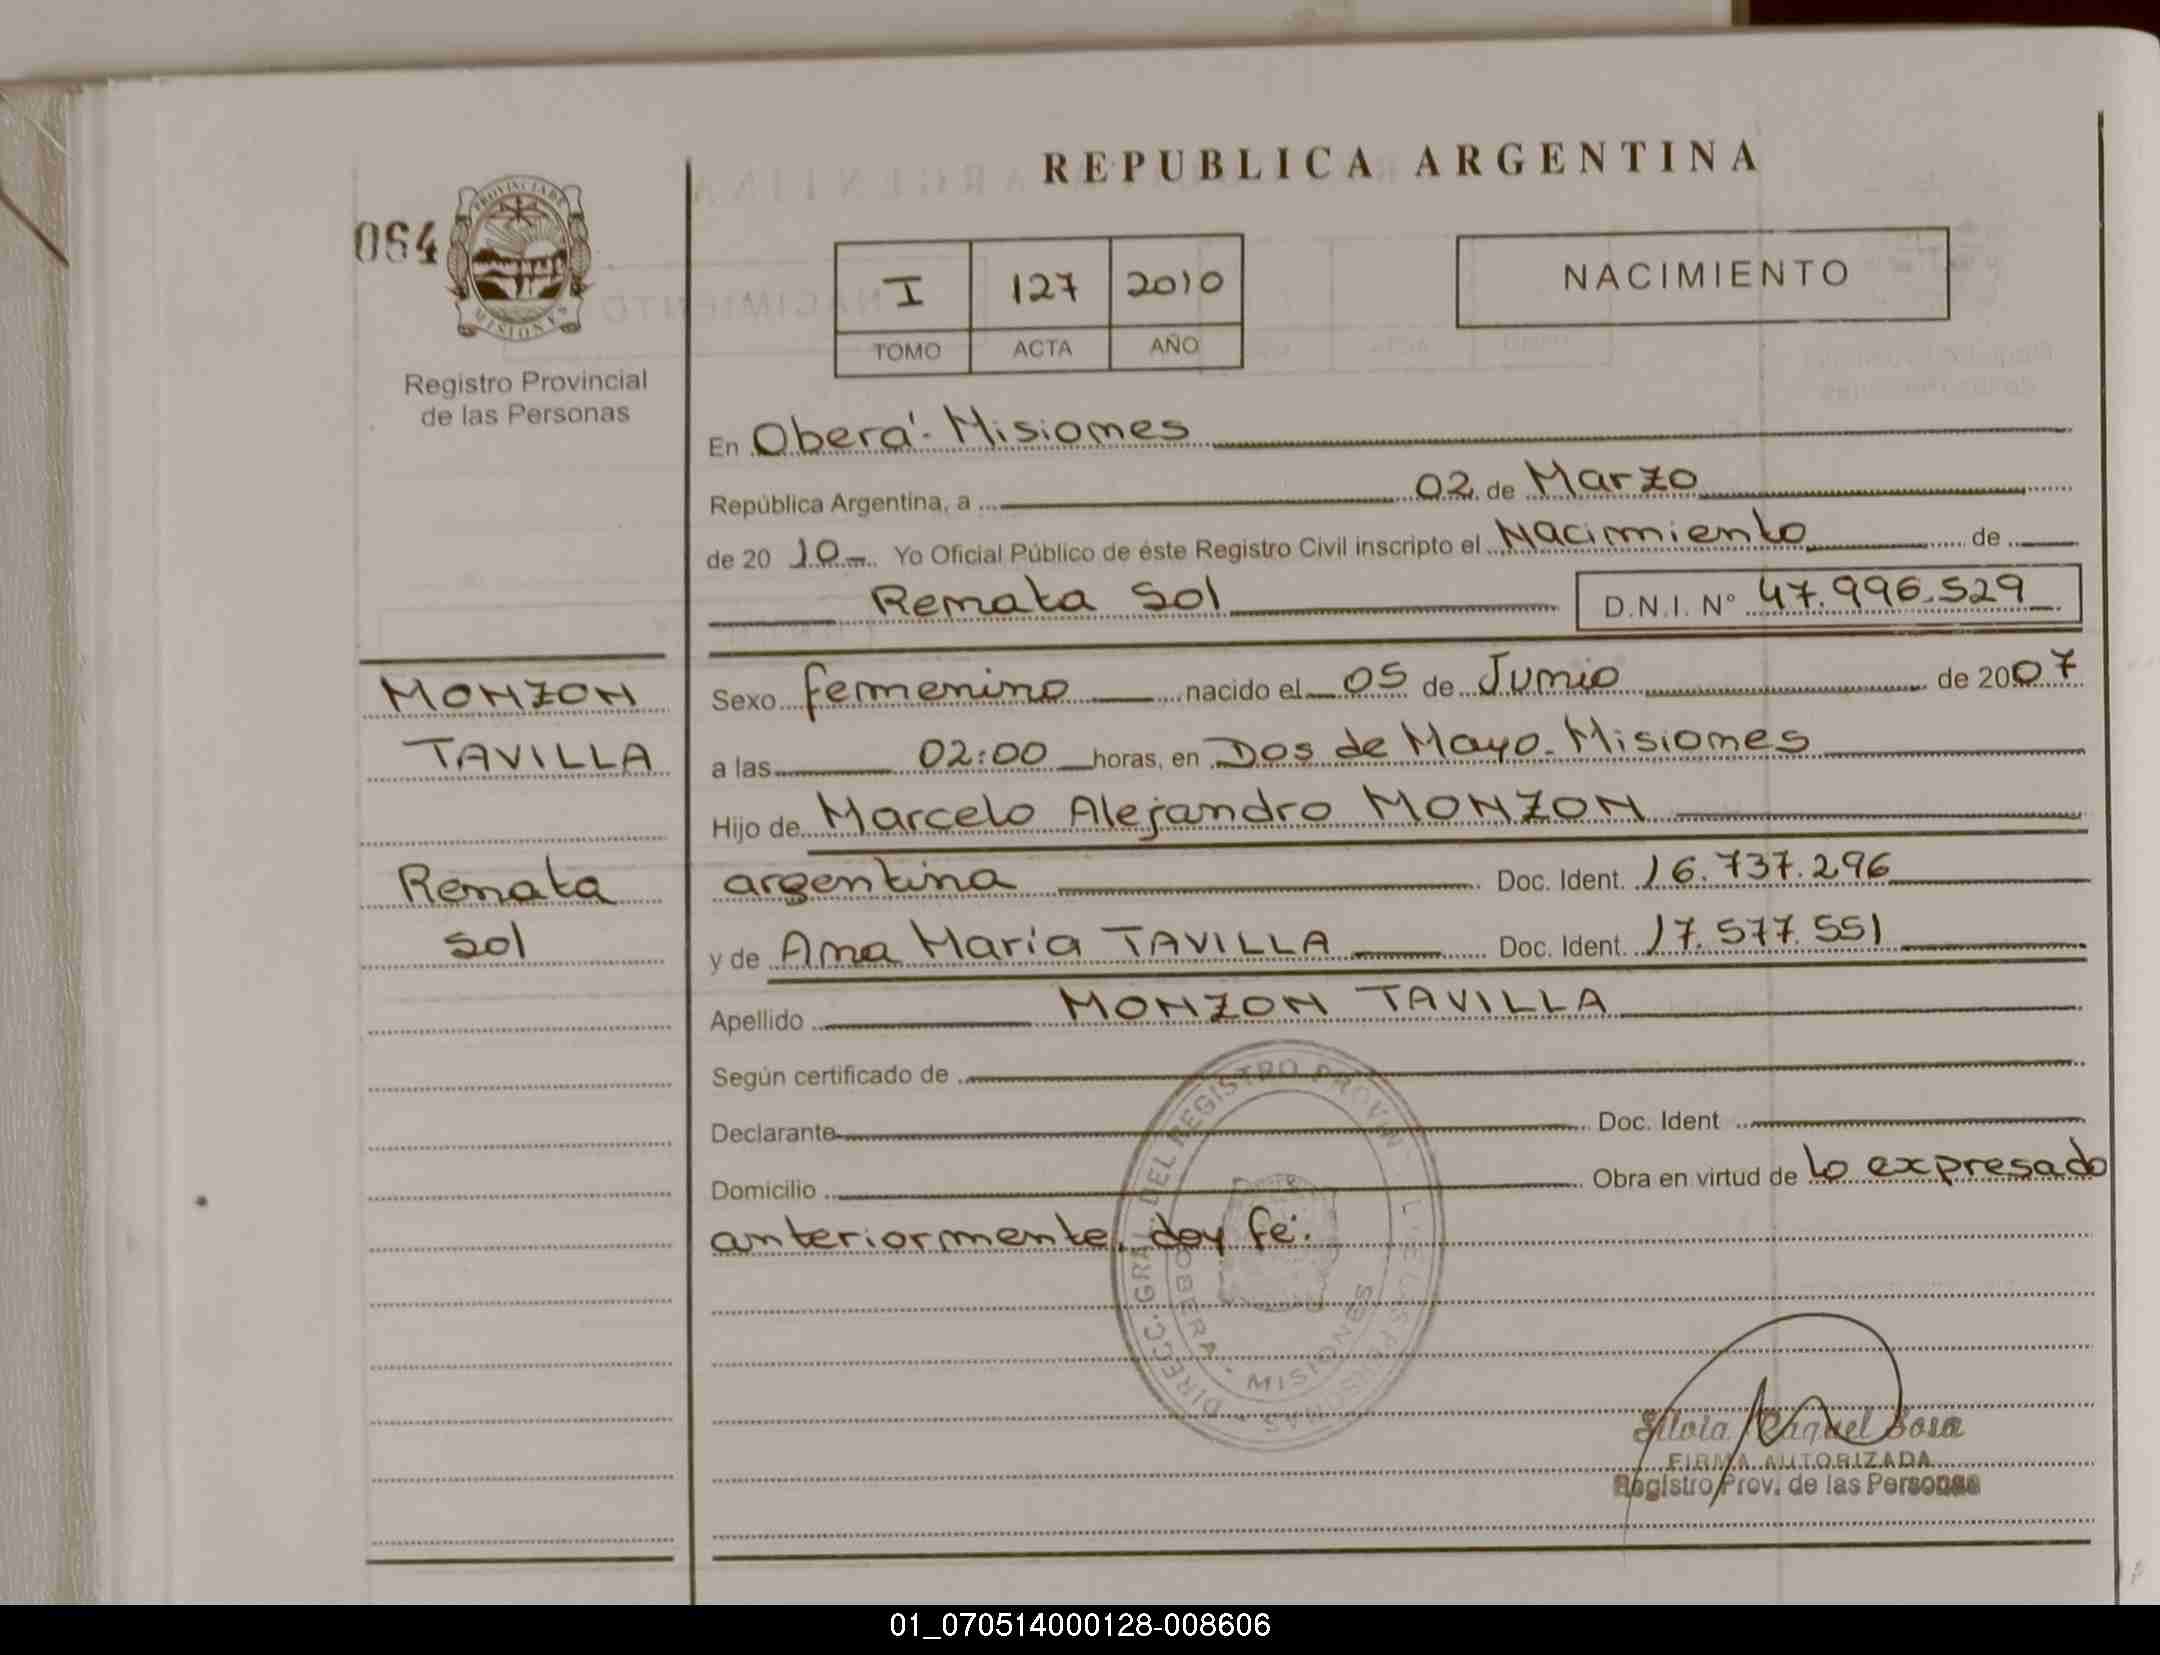 REPUBLICA ARGENTINA
064
PROVINCIA DE
MISIONES
Registro Provincial
de las Personas
I 127 2010
TOMO ACTA AÑO
NACIMIENTO
En Oberá - Misiones
República Argentina, a 02 de Marzo
de 20 10 Yo Oficial Público de éste Registro Civil inscripto el Nacimiento de
Renata Sol D.N.I. Nº 47.996.529
MONZON
TAVILLA
Renata
Sol
Sexo femenino nacido el 05 de Junio de 2007
a las 02:00 horas, en Dos de Mayo - Misiones
Hijo de Marcelo Alejandro MONZON
argentina Doc. Ident. 16.737.296
y de Ana María TAVILLA Doc. Ident. 17.577.551
Apellido MONZON TAVILLA
Según certificado de
Declarante Doc. Ident
Domicilio Obra en virtud de lo expresado
anteriormente, doy fé.
DIRECC. GRAL. DEL REGISTRO PROVINCIAL DE LAS PERSONAS
OBERA - MISIONES
Silvia Raquel Sosa
FIRMA AUTORIZADA
Registro Prov. de las Personas
01_070514000128-008606